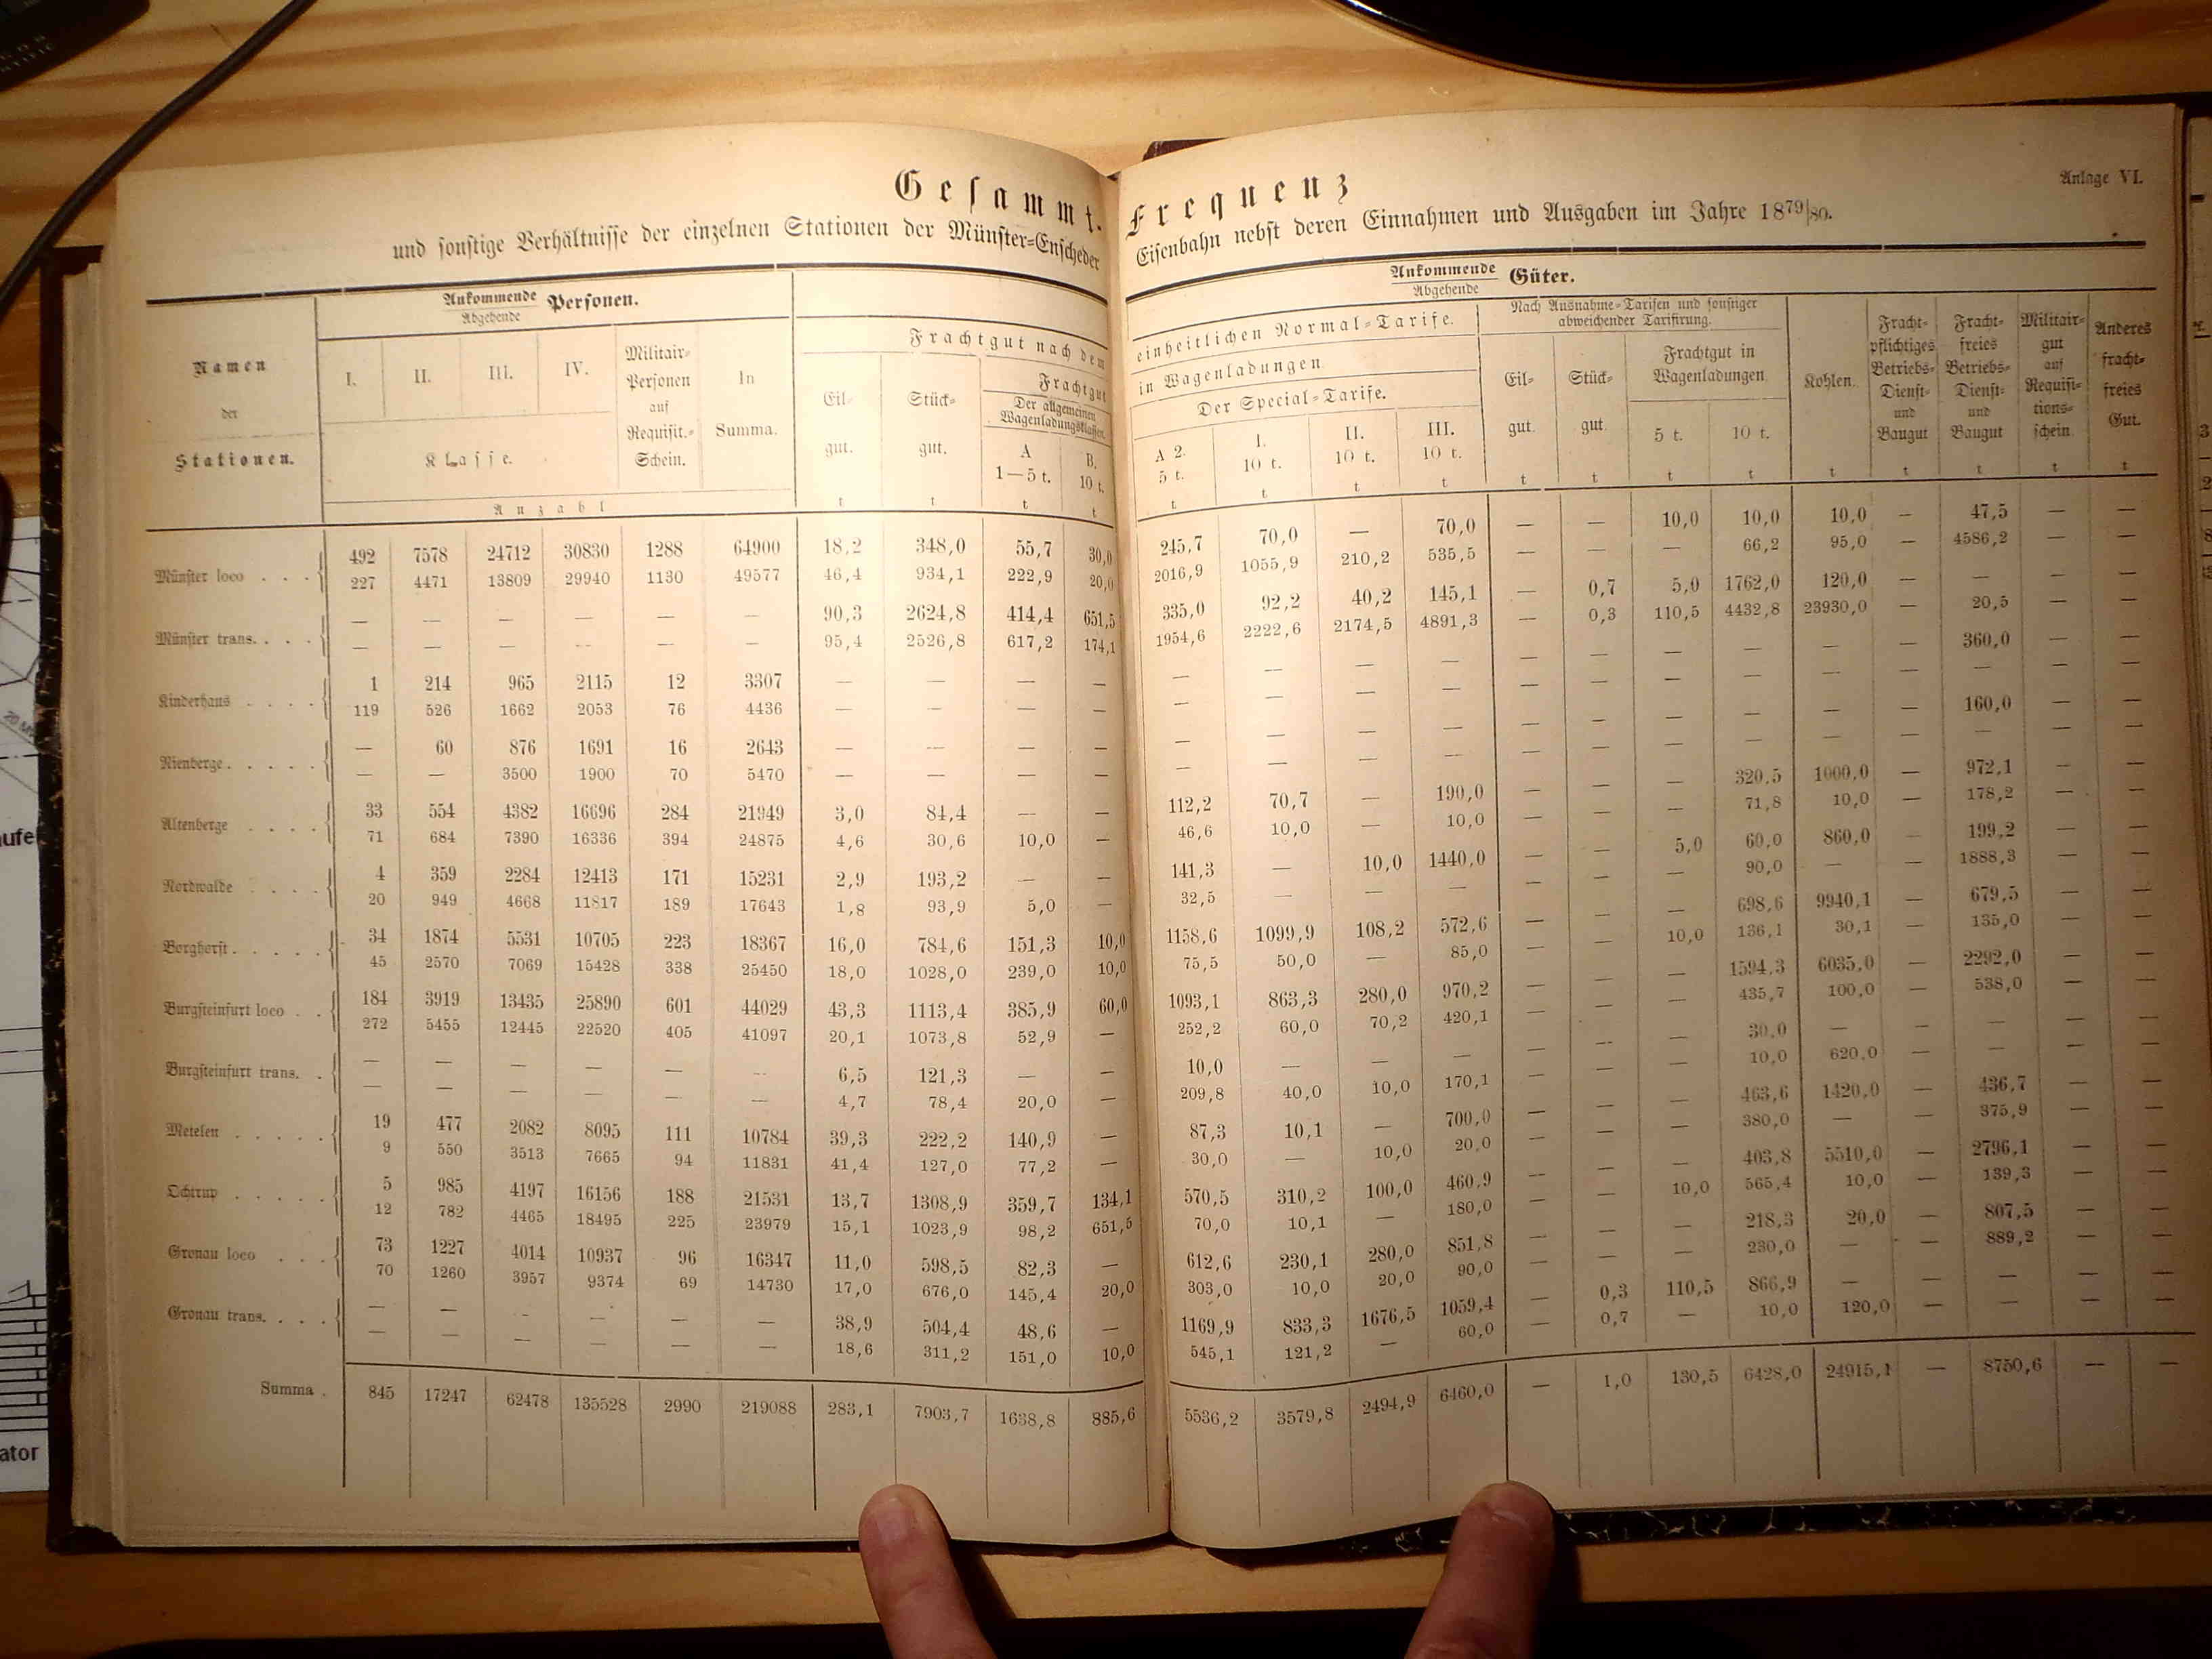 Anlage VI.
Gesammt-Frequenz
und sonstige Verhältnisse der einzelnen Stationen der Münster-Enscheder Eisenbahn nebst deren Einnahmen und Ausgaben im Jahre 1879/80.
Namen der Stationen.
Ankommende Abgehende Personen.
I. II. III. IV. Klasse.
Militair-Personen auf Requisit.-Schein.
In Summa.
Anzahl
Ankommende Abgehende Güter.
Frachtgut nach dem einheitlichen Normal-Tarife.
Eil-gut. t
Stück-gut. t
Frachtgut in Wagenladungen
Der allgemeinen Wagenladungsklassen.
A 1—5 t. t
B. 10 t. t
Der Special-Tarife.
A 2. 5 t. t
I. 10 t. t
II. 10 t. t
III. 10 t. t
Nach Ausnahme-Tarifen und sonstiger abweichender Tarifirung.
Eil-gut. t
Stück-gut. t
Frachtgut in Wagenladungen
5 t. t
10 t. t
Kohlen. t
Fracht-pflichtiges Betriebs-Dienst- und Baugut t
Fracht-freies Betriebs-Dienst- und Baugut t
Militair-gut auf Requisi-tions-schein. t
Anderes fracht-freies Gut. t
Münster loco . . . 492 7578 24712 30830 1288 64900 18,2 348,0 55,7 30,0 245,7 70,0 — 70,0 — — 10,0 10,0 10,0 — 47,5 — —
227 4471 13809 29940 1130 49577 46,4 934,1 222,9 20,0 2016,9 1055,9 210,2 535,5 — — — 66,2 95,0 — 4586,2 — —
Münster trans. . . . — — — — — — 90,3 2624,8 414,4 651,5 335,0 92,2 40,2 145,1 — 0,7 5,0 1762,0 120,0 — — — —
— — — — — — 95,4 2526,8 617,2 174,1 1954,6 2222,6 2174,5 4891,3 — 0,3 110,5 4432,8 23930,0 — 20,5 — —
Kinderhaus . . . . 1 214 965 2115 12 3307 — — — — — — — — — — — — — — 360,0 — —
119 526 1662 2053 76 4436 — — — — — — — — — — — — — — — — —
Nienberge . . . . . — 60 876 1691 16 2643 — — — — — — — — — — — — — — 160,0 — —
— — 3500 1900 70 5470 — — — — — — — — — — — — — — — — —
Altenberge . . . . 33 554 4382 16696 284 21949 3,0 84,4 — — 112,2 70,7 — 190,0 — — — 320,5 1000,0 — 972,1 — —
71 684 7390 16336 394 24875 4,6 30,6 10,0 — 46,6 10,0 — 10,0 — — — 71,8 10,0 — 178,2 — —
Nordwalde . . . . 4 359 2284 12413 171 15231 2,9 193,2 — — 141,3 — 10,0 1440,0 — — 5,0 60,0 860,0 — 199,2 — —
20 949 4668 11817 189 17643 1,8 93,9 5,0 — 32,5 — — — — — — 90,0 — — 1888,3 — —
Borghorst . . . . . 34 1874 5531 10705 223 18367 16,0 784,6 151,3 10,0 1158,6 1099,9 108,2 572,6 — — — 698,6 9940,1 — 679,5 — —
45 2570 7069 15428 338 25450 18,0 1028,0 239,0 10,0 75,5 50,0 — 85,0 — — 10,0 136,1 30,1 — 135,0 — —
Burgsteinfurt loco . . 184 3919 13435 25890 601 44029 43,3 1113,4 385,9 60,0 1093,1 863,3 280,0 970,2 — — — 1594,3 6035,0 — 2292,0 — —
272 5455 12445 22520 405 41097 20,1 1073,8 52,9 — 252,2 60,0 70,2 420,1 — — — 435,7 100,0 — 538,0 — —
Burgsteinfurt trans. . — — — — — — 6,5 121,3 — — 10,0 — — — — — — 30,0 — — — — —
— — — — — — 4,7 78,4 20,0 — 209,8 40,0 10,0 170,1 — — — 10,0 620,0 — — — —
Metelen . . . . . 19 477 2082 8095 111 10784 39,3 222,2 140,9 — 87,3 10,1 — 700,0 — — — 463,6 1420,0 — 436,7 — —
9 550 3513 7665 94 11831 41,4 127,0 77,2 — 30,0 — 10,0 20,0 — — — 380,0 — — 375,9 — —
Ochtrup . . . . . 5 985 4197 16156 188 21531 13,7 1308,9 359,7 134,1 570,5 310,2 100,0 460,9 — — — 403,8 5510,0 — 2796,1 — —
12 782 4465 18495 225 23979 15,1 1023,9 98,2 651,5 70,0 10,1 — 180,0 — — 10,0 565,4 10,0 — 139,3 — —
Gronau loco . . . 73 1227 4014 10937 96 16347 11,0 598,5 82,3 — 612,6 230,1 280,0 851,8 — — — 218,3 20,0 — 807,5 — —
70 1260 3957 9374 69 14730 17,0 676,0 145,4 20,0 303,0 10,0 20,0 90,0 — — — 230,0 — — 889,2 — —
Gronau trans. . . . — — — — — — 38,9 504,4 48,6 — 1169,9 833,3 1676,5 1059,4 — 0,3 110,5 866,9 — — — — —
— — — — — — 18,6 311,2 151,0 10,0 545,1 121,2 — 60,0 — 0,7 — 10,0 120,0 — — — —
Summa . 845 17247 62478 135528 2990 219088 283,1 7903,7 1638,8 885,6 5536,2 3579,8 2494,9 6460,0 — 1,0 130,5 6428,0 24915,1 — 8750,6 — —
ator